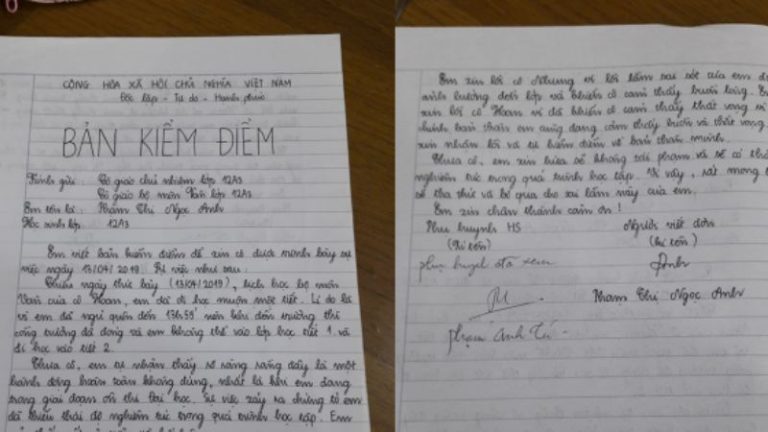 CỘNG HÒA XÃ HỘI CHỦ NGHĨA VIỆT NAM
Độc lập - Tự do - Hạnh phúc
BẢN KIỂM ĐIỂM
Kính gửi: Cô giáo chủ nhiệm lớp 12A3
Cô giáo bộ môn Văn lớp 12A3
Em tên là: Phạm Thị Ngọc Anh
Học sinh lớp 12A3
Em viết bản kiểm điểm để xin cô được trình bày sự
việc ngày 13/04/2019. Sự việc như sau:
Chiều ngày thứ bảy (13/04/2019), lịch học bộ môn
Văn của cô Hoan, em đã đi học muộn một tiết. Lí do là
vì em đã ngủ quên đến 13h55' nên khi đến trường thì
cổng trường đã đóng và em không thể vào lớp học tiết 1 và
chỉ học vào tiết 2.
Thưa cô, em tự nhận thấy rõ ràng rằng đây là một
hành động hoàn toàn không đúng, nhất là khi em đang
trong giai đoạn ôn thi đại học. Sự việc xảy ra chứng tỏ em
đã thiếu thái độ nghiêm túc trong quá trình học tập. Em
Em xin lỗi cô Nhung vì lỗi lầm sai sót của em
ảnh hưởng đến lớp và khiến cô cảm thấy buồn lòng. Em
xin lỗi cô Hoan vì đã khiến cô cảm thấy thất vọng vì
chính bản thân em cũng đang cảm thấy buồn và thất vọng.
xin nhận lỗi và tự kiểm điểm về bản thân mình.
Thưa cô, em xin hứa sẽ không tái phạm và sẽ có
nghiêm túc trong quá trình học tập. Vì vậy, rất mong
sẽ tha thứ và bỏ qua cho sai lầm này của em.
Em xin chân thành cảm ơn!
Phụ huynh HS Người viết đơn
(Kí tên) (kí tên)
phụ huynh đã xem Anh
Phạm Thị Ngọc Anh
Phạm Anh Tú